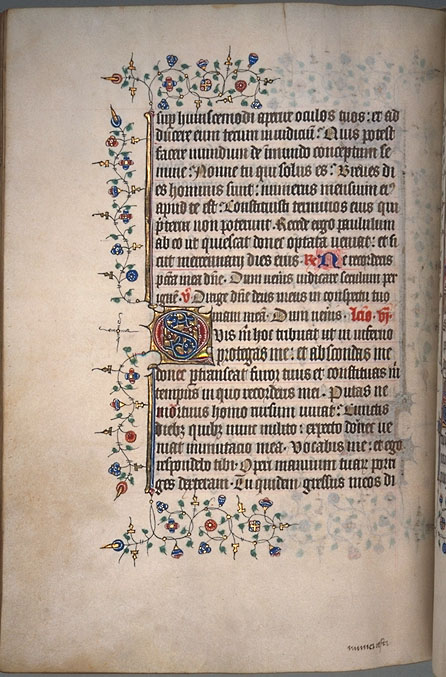 sup huiuscemodi aperire oculos tuos: et ad
ducere eum tecum in iudicium: Quis potest
facere mundum de inmundo conceptum se
mine: Nonne tu qui solus es: Breues di
es hominis sunt: numerus mensium eiꝰ
apud te est: Constituisti terminos eius qui
pterire non poterunt. Recede ergo paululum
ab eo ut quiescat donec optata ueniat: et si
cut mercenarij dies eius. R̸ Ne recorderis
pccata mea dñe. Dum ueneris iudicare seculum per
igneꝫ. V̸ Dirige dñe deus meus in conspectu tuo
uiam meā. Dum ueneris. Lcio. vj.
Quis m̄ hoc tribuat ut in inferno
protegas me: et abscondas me
donec ptranseat furor tuus et constituas m̄
tempus in quo recorderis mei. Putas ne
mortuus homo rursum uiuat: Cunctis
diebꝫ quibꝫ nunc milito: expecto donec ue
niat inmutacio mea. Vocabis me: et ego
respondebo tibi. Operi manuum tuarꝫ porri
ges dexteram. Tu quidem gressus meos di